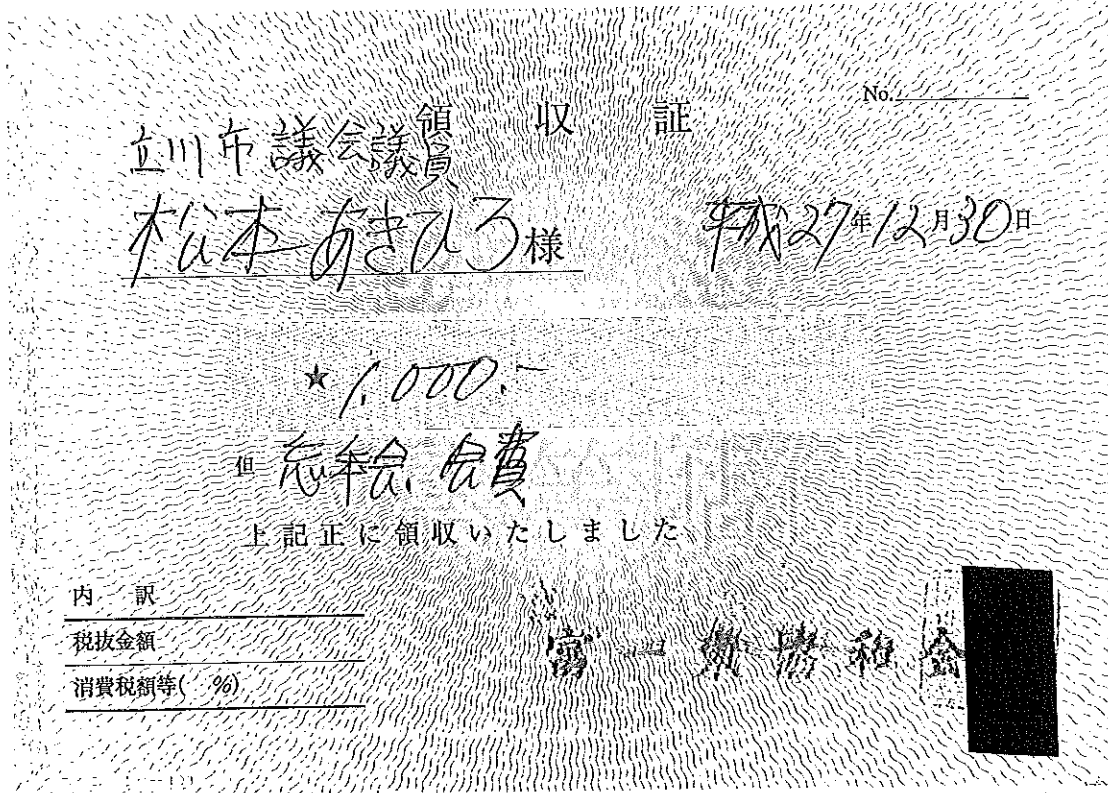 No.
領収証
立川市議会議員
松本あきひろ様
平成27年12月30日
★1,000.-
但 忘年会、会費
上記正に領収いたしました
内訳
税抜金額
消費税額等( %)